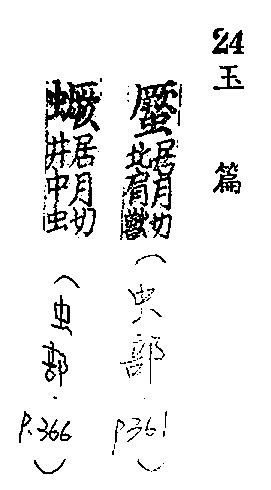 24
玉篇
蟨居月切
北方獸
(虫部
p361)
蟩居月切
井中虫
(虫部
P.366)